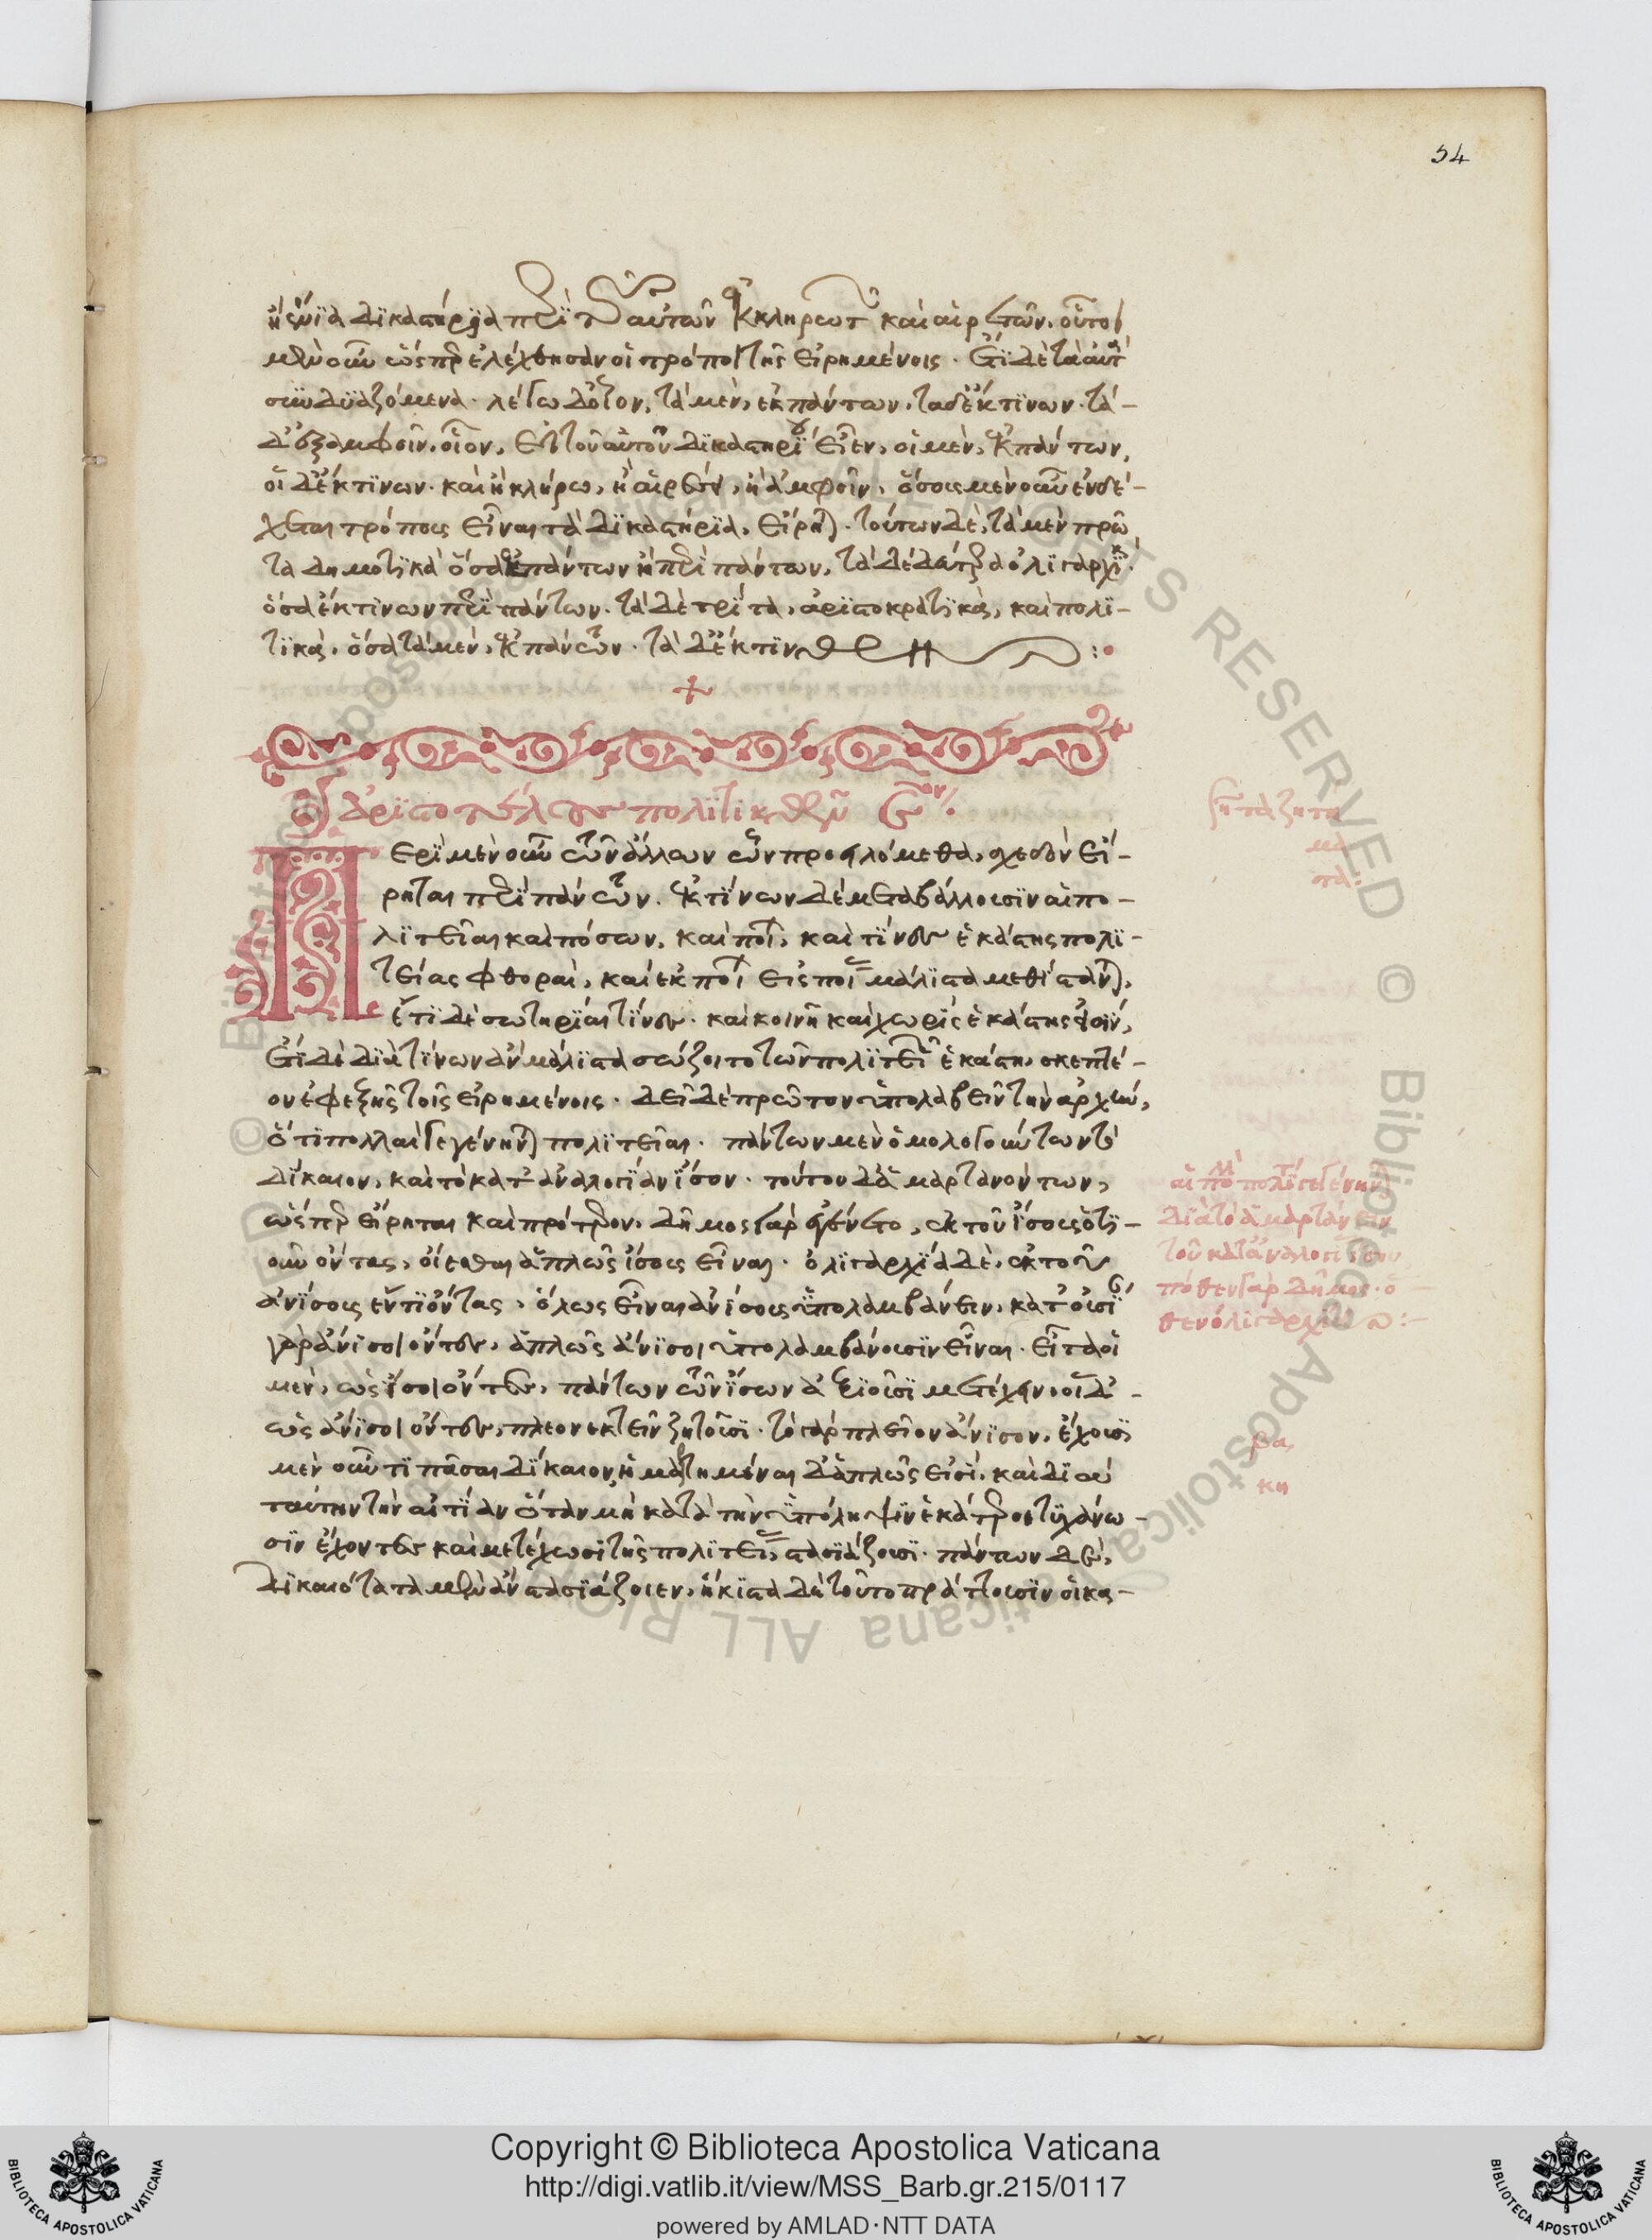 54
ἢ ἔνια δικαστήρια περὶ τῶν αὐτῶν ἐκ κληρωτῶν καὶ αἱρετῶν. οὗτοι
μὲν οὖν ὥσπερ ἐλέχθησαν οἱ τρόποι τοῖς εἰρημένοις. ἔτι δὲ τὰ αὐτὰ
συνδυαζόμενα. λέγω δ' οἷον, τὰ μὲν, ἐκ πάντων. τὰ δ' ἐκ τινῶν. τὰ
δ' ἐξ ἀμφοῖν. οἷον, εἰ τοῦ αὐτοῦ δικαστηρίου εἶεν, οἱ μὲν, ἐκ πάντων,
οἱ δ' ἐκ τινῶν. καὶ ἢ κλήρω, ἢ αἱρέσει, ἢ ἀμφοῖν. ὅσους μὲν οὖν ἐνδέ-
χεται τρόπους εἶναι τὰ δικαστήρια, εἴρηται. τούτων δὲ, τὰ μὲν πρῶ
τα δημοτικὰ ὅσα ἐκ πάντων ἢ περὶ πάντων, τὰ δὲ δεύτερα ὀλιγαρχικά.
ὅσα ἐκ τινῶν περὶ πάντων. τὰ δὲ τρίτα, ἀριστοκρατικὰ, καὶ πολι-
τικά, ὅσα τὰ μὲν, ἐκ πάντων. τὰ δ' ἐκ τινῶν :
ἀριστοτέλους πολιτικῶν
Περὶ μὲν οὖν τῶν ἄλλων ὧν προειλόμεθα, σχεδὸν εἴ-
ρηται περὶ πάντων. ἐκ τίνων δὲ μεταβάλλουσιν αἱ πο-
λιτεῖαι καὶ πόσων, καὶ ποίων, καὶ τίνες ἑκάστης πολι-
τείας φθοραὶ, καὶ ἐκ ποίων εἰς ποίας μάλιστα μεθίστανται,
ἔτι δὲ σωτηρίαι τίνες. καὶ κοινῆ καὶ χωρὶς ἑκάστης εἰσὶν,
ἔτι δὲ διὰ τίνων ἂν μάλιστα σώζοιτο τῶν πολιτειῶν ἑκάστη, σκεπτέ-
ον ἐφεξῆς τοῖς εἰρημένοις. δεῖ δὲ πρῶτον ὑπολαβεῖν τὴν ἀρχὴν,
ὅτι πολλαὶ γεγένηνται πολιτεῖαι. πάντων μὲν ὁμολογούντων τὸ
δίκαιον, καὶ τὸ κατ' ἀναλογίαν ἴσον. τούτου δ' ἁμαρτανόντων,
ὥσπερ εἴρηται καὶ πρότερον. δῆμος γὰρ ἐγένετο, ἐκ τοῦ ἴσους ὁτι-
οῦν ὄντας, οἴεσθαι ἁπλῶς ἴσους εἶναι. ὀλιγαρχία δὲ, ἐκ τοῦ
ἀνίσους ἕν τι ὄντας, ὅλως εἶναι ἀνίσους ὑπολαμβάνειν, κατ' οὐσίαν
γὰρ ἄνισοι ὄντες, ἁπλῶς ἄνισοι ὑπολαμβάνουσιν εἶναι. εἶτα οἱ
μὲν, ὡς ἴσοι ὄντες, πάντων τῶν ἴσων ἀξιοῦσι μετέχειν. οἱ δ'
ὡς ἄνισοι ὄντες, πλεονεκτεῖν ζητοῦσι. τὸ γὰρ πλεῖον ἄνισον, ἔχουσι
μὲν οὖν τι πᾶσαι δίκαιον, ἡμαρτημέναι δ' ἁπλῶς εἰσὶ, καὶ διὰ
ταύτην τὴν αἰτίαν ὅταν μὴ κατὰ τὴν ὑπόληψιν ἑκάτεροι τυγχάνω-
σιν ἔχοντες καὶ μετέχωσι τῆς πολιτείας, στασιάζουσι. πάντων δὲ,
δικαιότατα μὲν ἂν στασιάζοιεν, ἥκιστα δὲ τοῦτο πράττουσιν οἱ κα-
τὰ ζητή
μα
τα:
αἱ πολιτεῖαι γεγένηνται
διὰ τὸ ἁμαρτάνειν
τοῦ κατ' ἀναλογίαν ἴσου
πόθεν γὰρ δῆμος. ὁ
θεν ὀλιγαρχία:
Copyright © Biblioteca Apostolica Vaticana
http://digi.vatlib.it/view/MSS_Barb.gr.215/0117
powered by AMLAD·NTT DATA
BIBLIOTECA APOSTOLICA VATICANA
BIBLIOTECA APOSTOLICA VATICANA